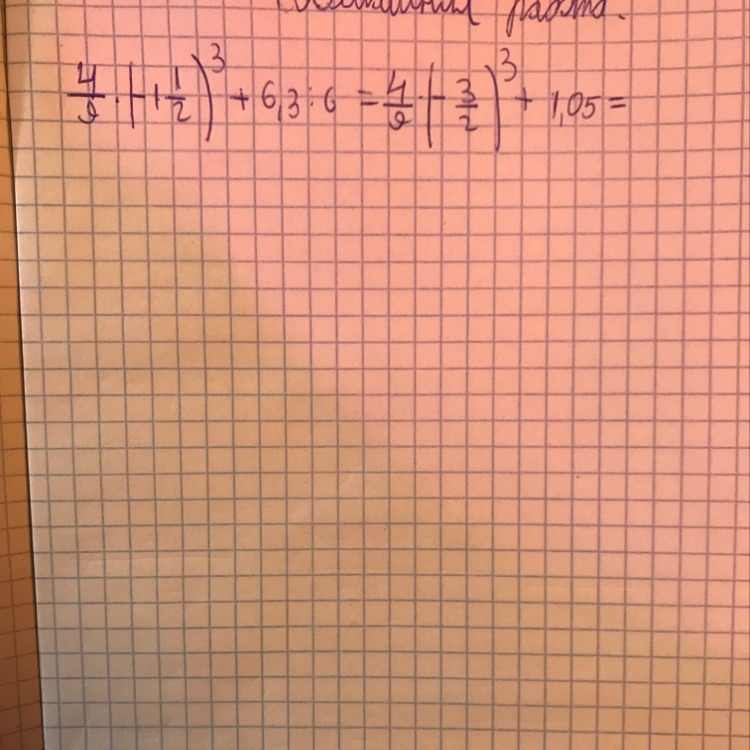 работа.
4/9 · (-1 1/2)³ + 6,3 : 6 = 4/9 · (-3/2)³ + 1,05 =